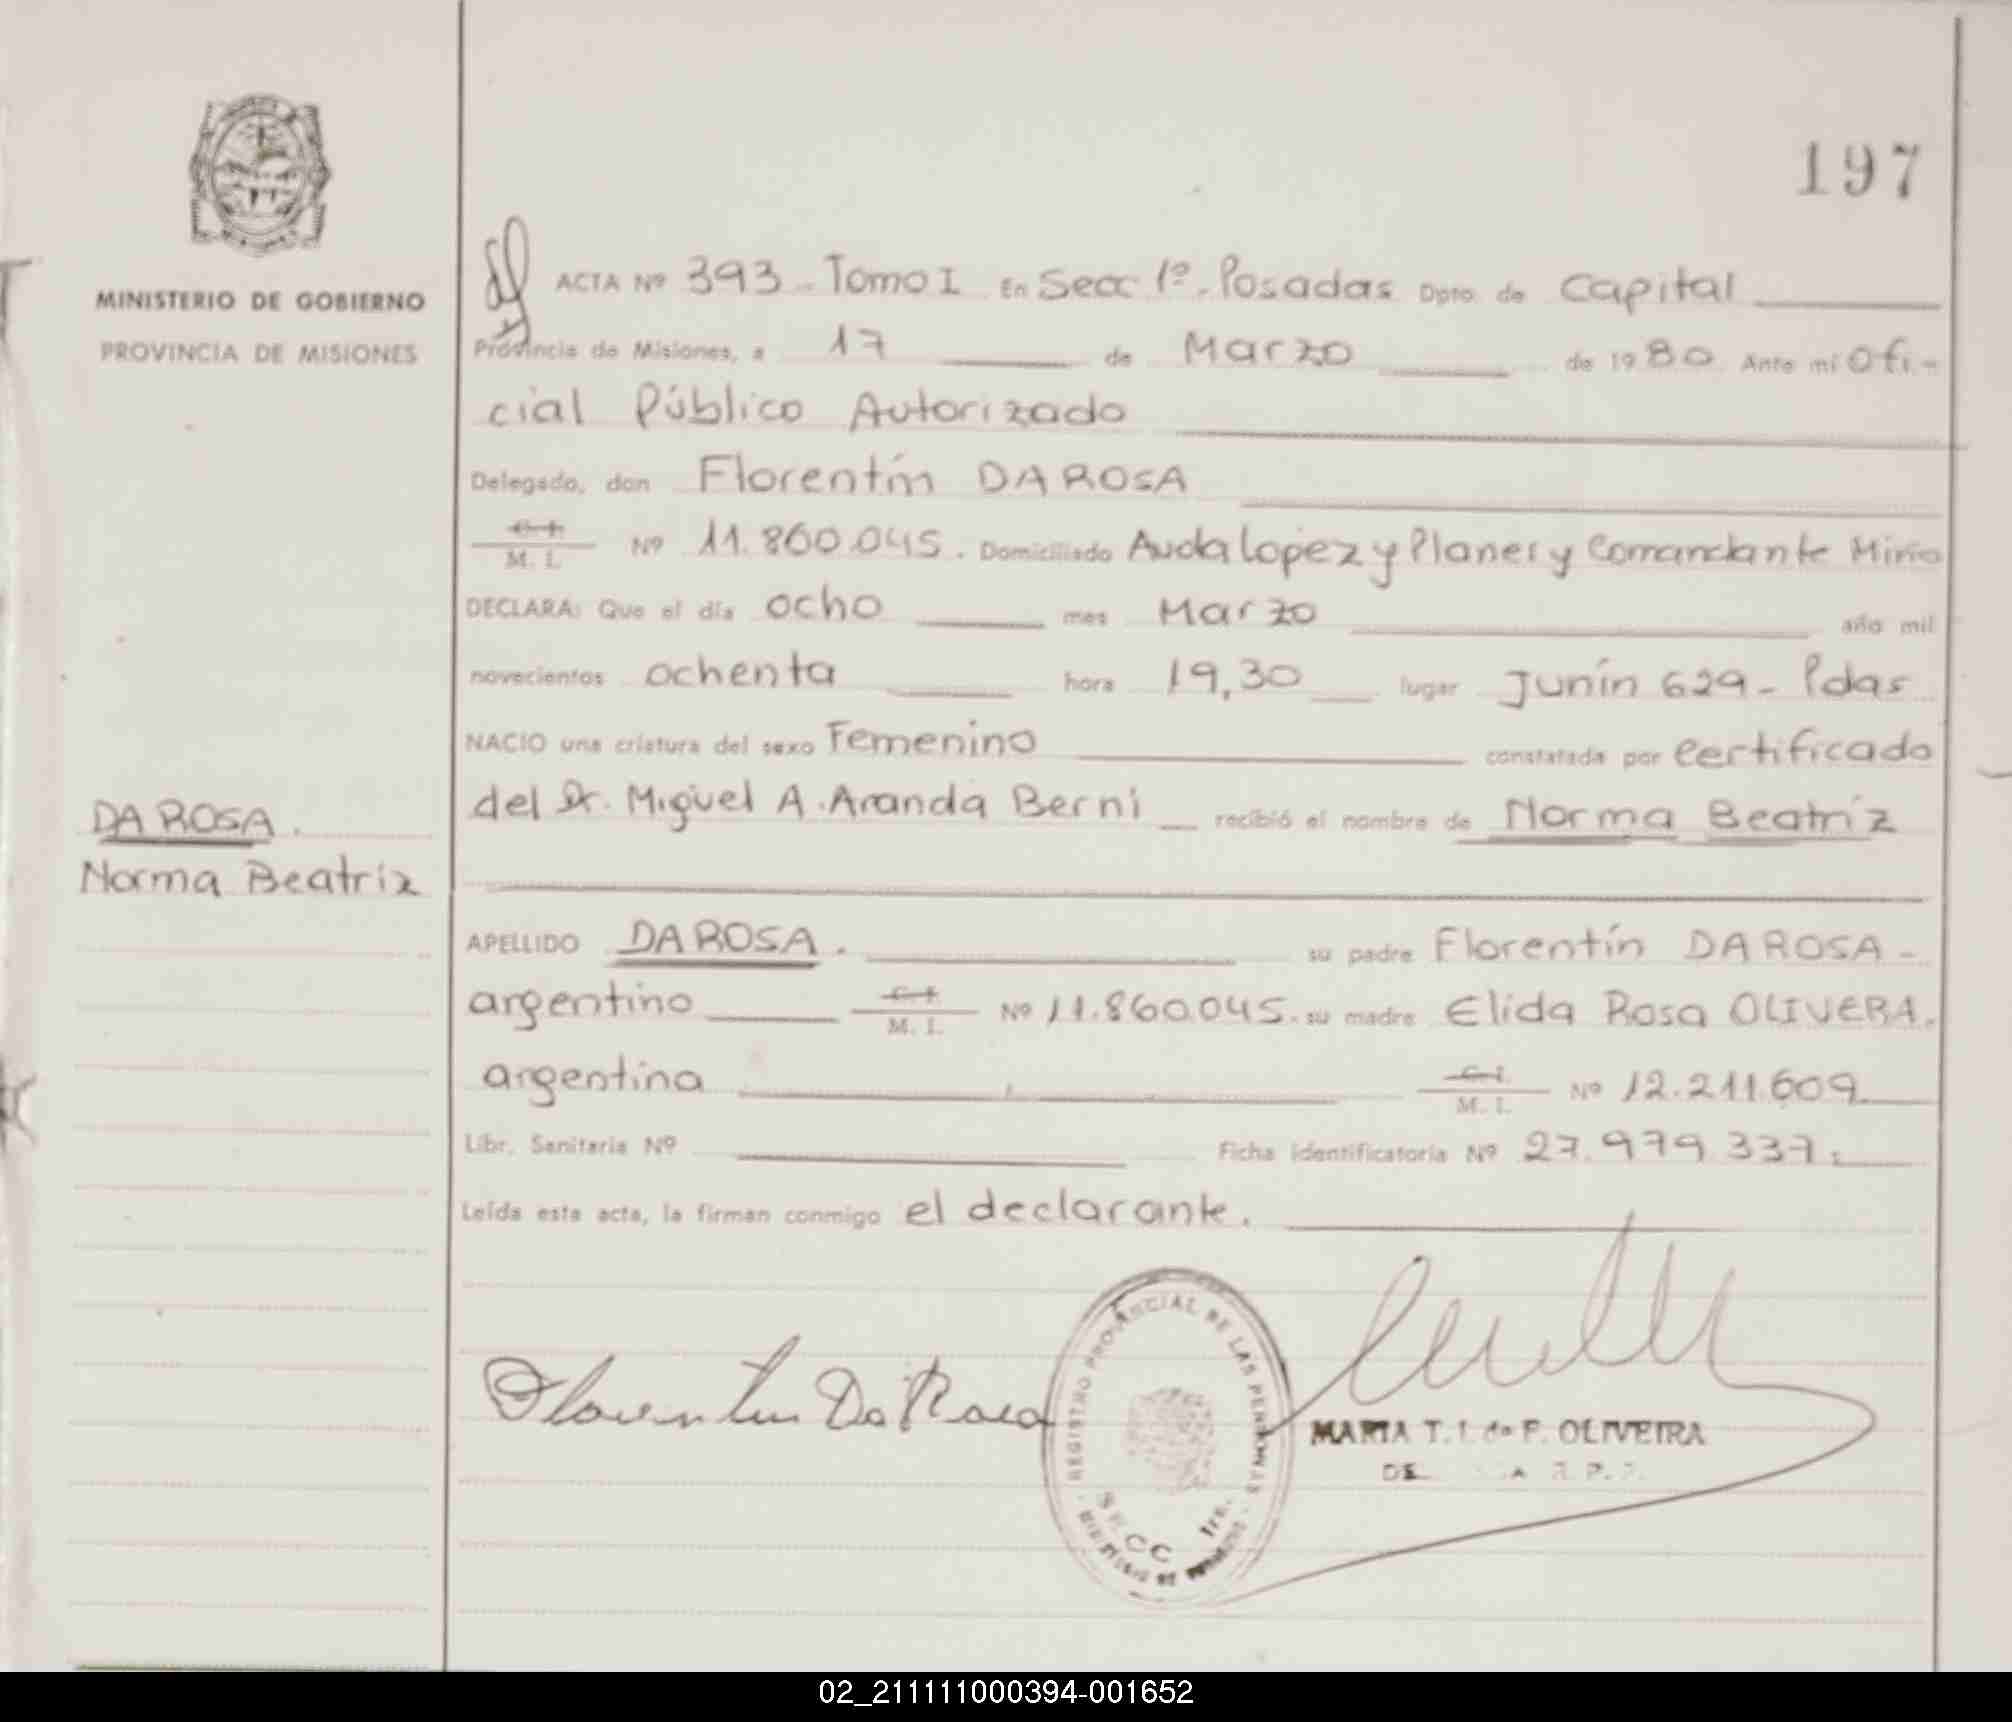 197
MINISTERIO DE GOBIERNO
PROVINCIA DE MISIONES
DA ROSA.
Norma Beatriz
ACTA Nº 393 - Tomo I En Secc 1º. Posadas Dpto de Capital
Provincia de Misiones, a 17 de Marzo de 1980 Ante mí Ofi-
cial Público Autorizado
Delegado, don Florentín DA ROSA
C. I.
M. I. Nº 11.860.045. Domiciliado Avda Lopez y Planes y Comandante Mirio
DECLARA: Que el día ocho mes Marzo año mil
novecientos ochenta hora 19,30 lugar Junín 629 - Pdas
NACIO una criatura del sexo Femenino constatada por Certificado
del Dr. Miguel A. Aranda Berni recibió el nombre de Norma Beatríz
APELLIDO DA ROSA. su padre Florentín DA ROSA -
argentino C. I.
M. I. Nº 11.860.045. su madre Elida Rosa OLIVERA.
argentina C. I.
M. I. Nº 12.211.609.
Libr. Sanitaria Nº Ficha identificatoria Nº 27.979.337.
Leída esta acta, la firman conmigo el declarante.
Florentin Da Rosa
REGISTRO PROVINCIAL DE LAS PERSONAS
SECC 1ra.
MINISTERIO DE GOBIERNO
MARIA T. I. de F. OLIVEIRA
02_211111000394-001652